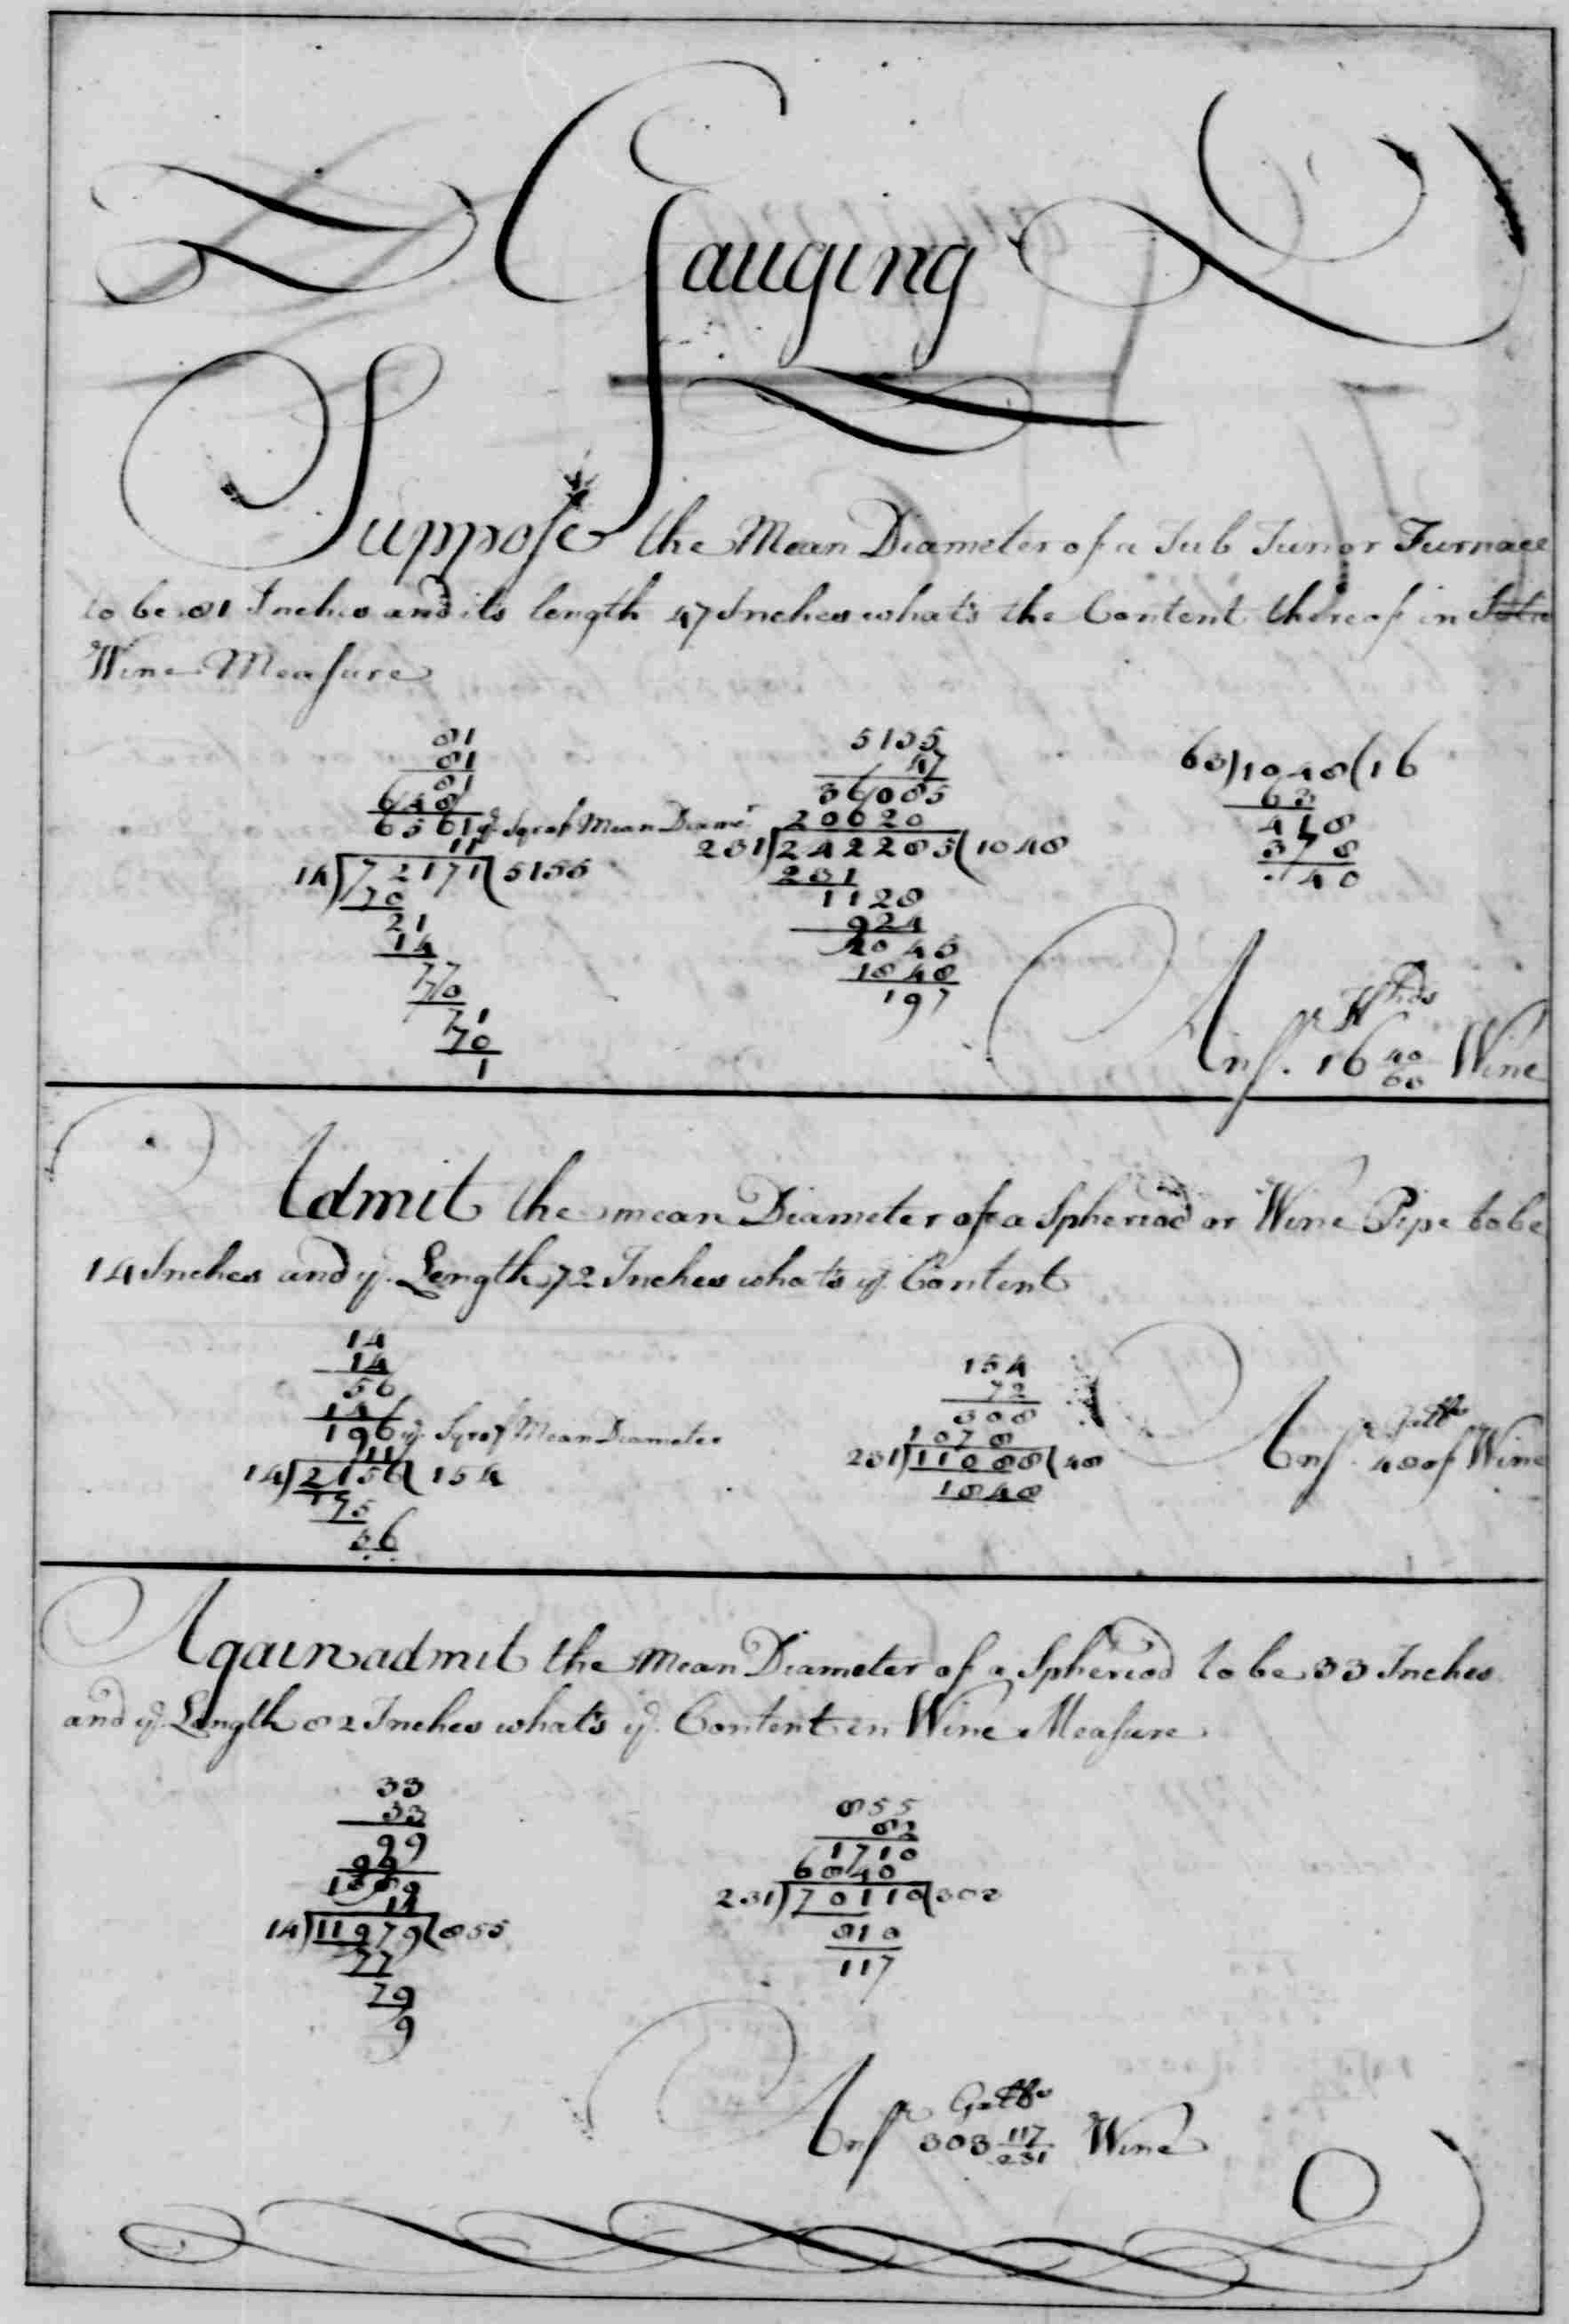 Gauging
Suppose the Mean Diameter of a Tub Tun or Furnace
to be 81 Inches and its length 47 Inches what's the Content thereof in
Wine Measure
81
81
81
648
6561 ye Sqr of Mean Diamr
11
14)72171(5155
70
21
14
77
70
71
70
1
5155
47
36085
20620
231)242285(1048
231
1128
924
2045
1848
197
63)1048(16
63
418
378
40
Hhds
Ans. 16 40/63 Wine
Admit the mean Diameter of a Spheriod or Wine Pipe to be
14 Inches and ye Length 72 Inches what's ye Content
14
14
56
14
196 ye Sqr of Mean Diameter
11
14)2156(154
75
56
154
72
308
1078
231)11088(48
1848
Galls
Ans. 48 of Wine
Again admit the Mean Diameter of a Spheriod to be 33 Inches
and ye Length 82 Inches what's ye Content in Wine Measure
33
33
99
99
1089
11
14)11979(855
77
79
9
855
82
1710
6840
231)70110(303
810
117
Galls
Ans 303 117/231 Wine